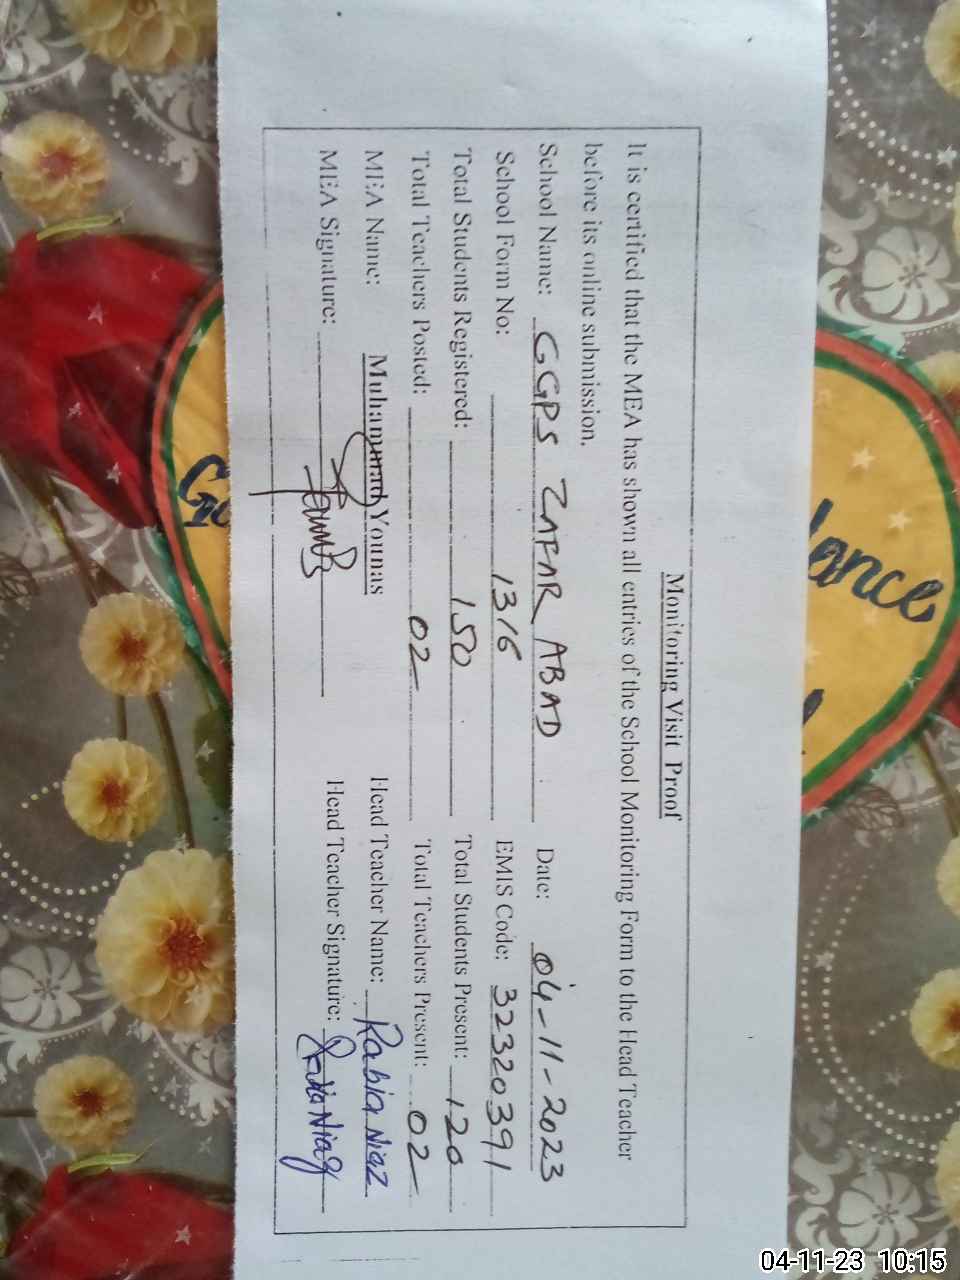 Monitoring Visit Proof
It is certified that the MEA has shown all entries of the School Monitoring Form to the Head Teacher
before its online submission.
School Name: GGPS ZAFAR ABAD Date: 04-11-2023
School Form No: 1316 EMIS Code: 32320391
Total Students Registered: 150 Total Students Present: 120
Total Teachers Posted: 02 Total Teachers Present: 02
MEA Name: Muhammad Younas Head Teacher Name: Rabia Niaz
MEA Signature: Head Teacher Signature: Rabia Niaz
04-11-23 10:15